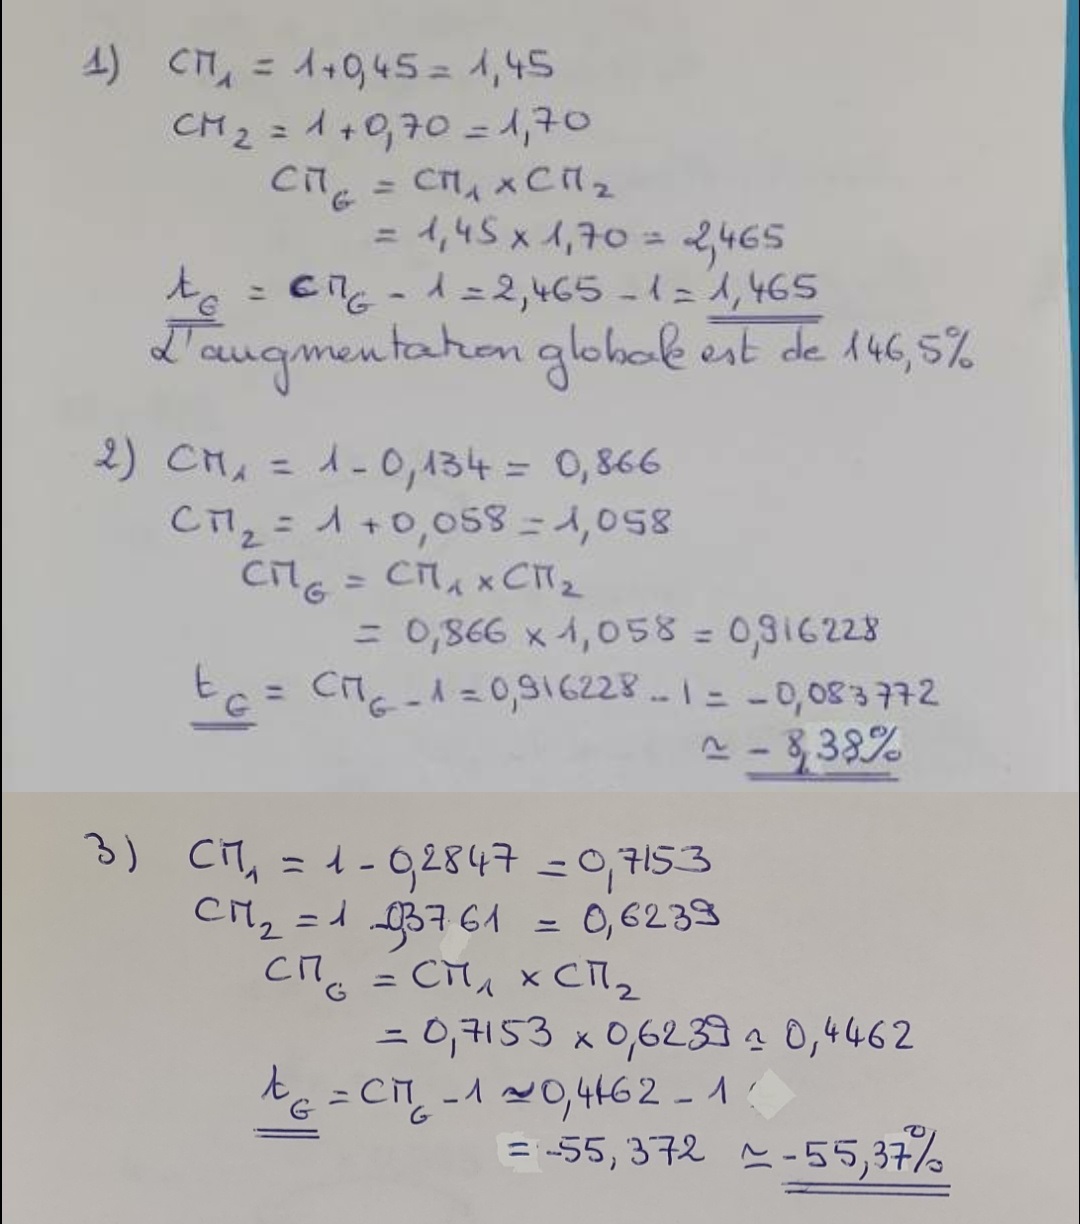 1) CM₁ = 1+0,45 = 1,45
CM₂ = 1+0,70 = 1,70
CM_G = CM₁ × CM₂
= 1,45 × 1,70 = 2,465
t_G = CM_G - 1 = 2,465 - 1 = 1,465
L'augmentation globale est de 146,5%
2) CM₁ = 1 - 0,134 = 0,866
CM₂ = 1 + 0,058 = 1,058
CM_G = CM₁ × CM₂
= 0,866 × 1,058 = 0,916228
t_G = CM_G - 1 = 0,916228 - 1 = -0,083772
≃ - 8,38%
3) CM₁ = 1 - 0,2847 = 0,7153
CM₂ = 1 - 0,3761 = 0,6239
CM_G = CM₁ × CM₂
= 0,7153 × 0,6239 ≃ 0,4462
t_G = CM_G - 1 ≃ 0,4462 - 1
= -55,372 ≃ -55,37%